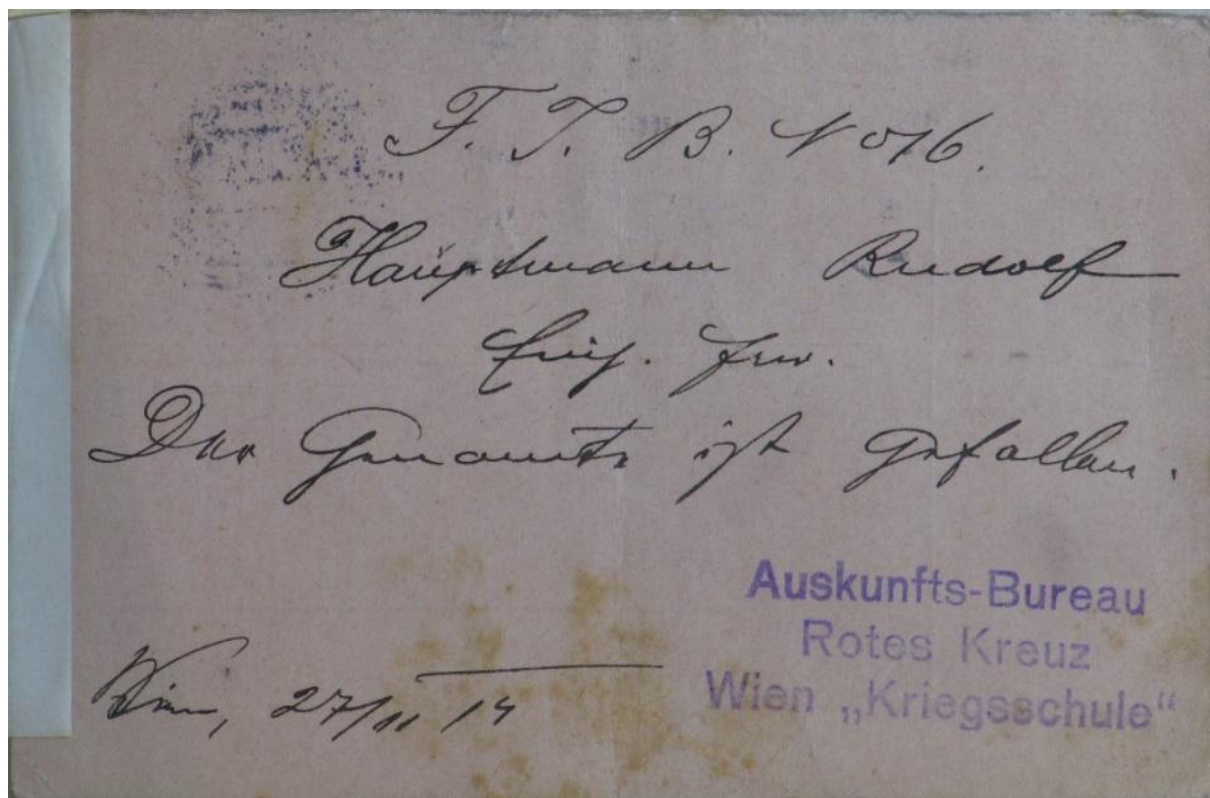 F. J. B. No 16.
Hauptmann Rudolf
Einj. Frw.
Der Genannte ist gefallen.
Wien, 27/11 14
Auskunfts-Bureau
Rotes Kreuz
Wien „Kriegsschule“